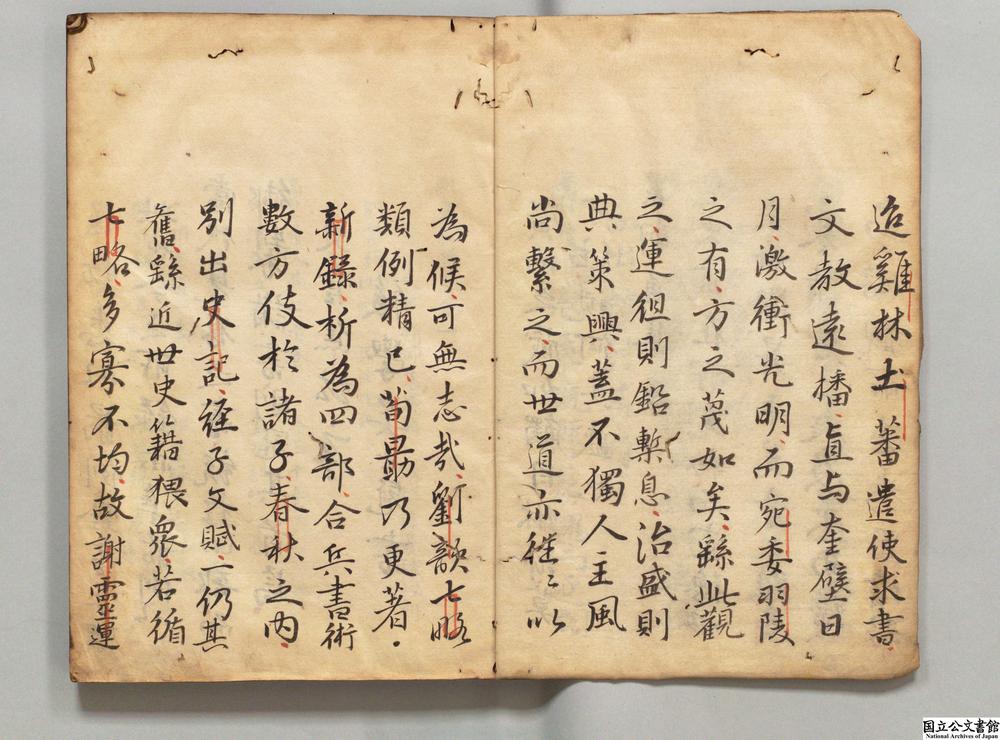 迨雞林土蕃遣使求書
文教遠播直与奎壁日
月激衝光明而宛委羽陵
之有方之蔑如矣繇此觀
之運徂則鉛槧息治盛則
典策興蓋不獨人主風
尚繫之而世道亦往〻以
為候可無志哉劉歆七略
類例精已荀勗乃更著
新録析為四部合兵書術
數方伎於諸子春秋之内
別出史記經子文賦一仍其
舊繇近世史籍猥衆若循
七略多寡不均故謝靈運
国立公文書館
National Archives of Japan